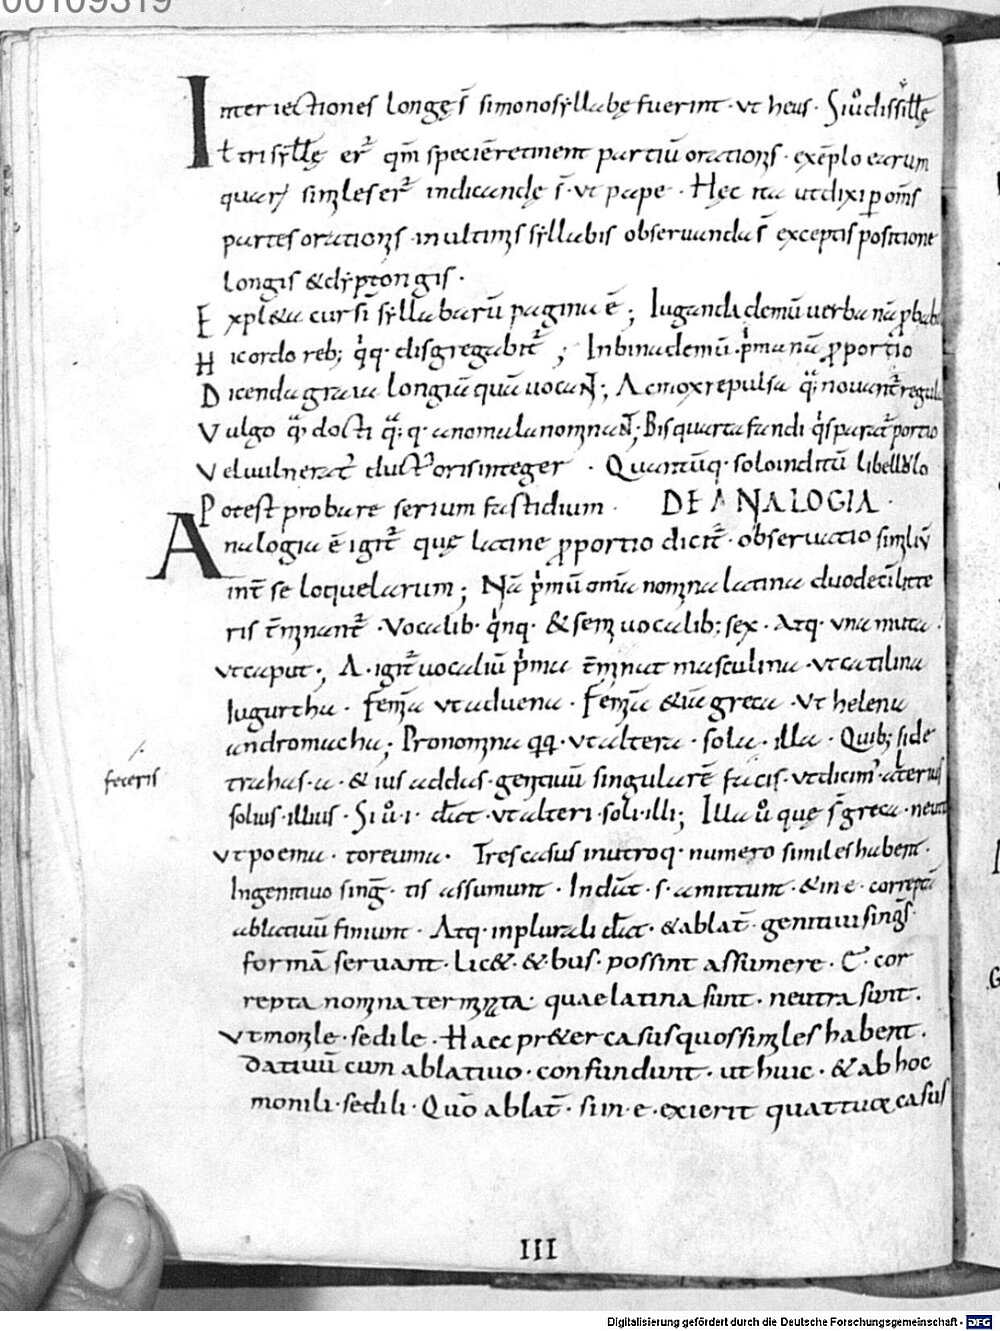 00109319
Inter iectiones longę s̄ si monosyllabę fuerint · vt heus · Siu̇ dissillę
ł tri syllę er̄ qm̄ speciē retinent partiū orationis · exēplo earum
quarū similes er̄ indicandę s̄ · vt pape · Hęc ita ut dixi p om̄s
partes orationis · in ultimis syllabis obseruanda s̄ exceptis positione
longis & dyptongis ·
Expl&a cursī syllabarū pagina ē ; Iuganda demū uerba nā
Hic ordo reb; q̇q· disgregabit̄ ; In bina demū · p̍ma nā p̱portio
Dicenda graia longiā quā uocaNT ; Ac mox repulsa q̄; nouant̄ regula
Vulgo q̄; docti q̄;q· anomala nominaNT · Bis quarta fandi q̍s parat̄ portio
Vel uulnerat̄ duct̄oris integer · Quamūq· solo inditū libellulo
Potest probare serium fastidium · DE ANALOGIA ·
Analogia ē igit̄ quę latine p̱portio dicit̄ · obseruatio similiū
int̄ se loquelarum ; Nā p̍mū om̄a nomina latina duodeci litte
ris t̄minant̄ · Vocalib· q̍nq· & semiuocalib; sex · Atq· vna muta ·
vt caput ; A · igit̄ uocaliū p̍ma t̄minat masculina · vt catilina
Iugurtha · femīa vt aduena · Femīa &iā greca · Vt helena
andromacha ; Pronomina q̱q̱ · vt altera · sola · illa · Quib; si de
feceris
trahas · a · & ius addas · genitiuū singularē facis · vt dicim̍ alterius
solius · illius · Si u̇ · i · dat̄ · vt alteri · soli · illi ; Illa u̇ quę s̄ greca · neut
vt poema · toreuma · Tres casus in utroq· numero similes habent ·
In genitiuo sinḡ · tis assumunt · In dat̄ · s · amittunt · & in e · correptā
ablatiuū finiunt · Atq· in plurali dat̄ · & ablat̄ · genitiui sinḡs
formā seruant · Lic& · & bus · possint assumere · E · cor
repta nomina terminata · quae latina sunt · neutra sunt ·
vt monile · sedile · Haec pr&er casus quos similes habent ·
Datiuū cum ablatiuo · confundunt · ut huic · & ab hoc
monili · sedili · Quō ablat̄ · sin · e · exierit quattuor casus
III
Digitalisierung gefördert durch die Deutsche Forschungsgemeinschaft - DFG